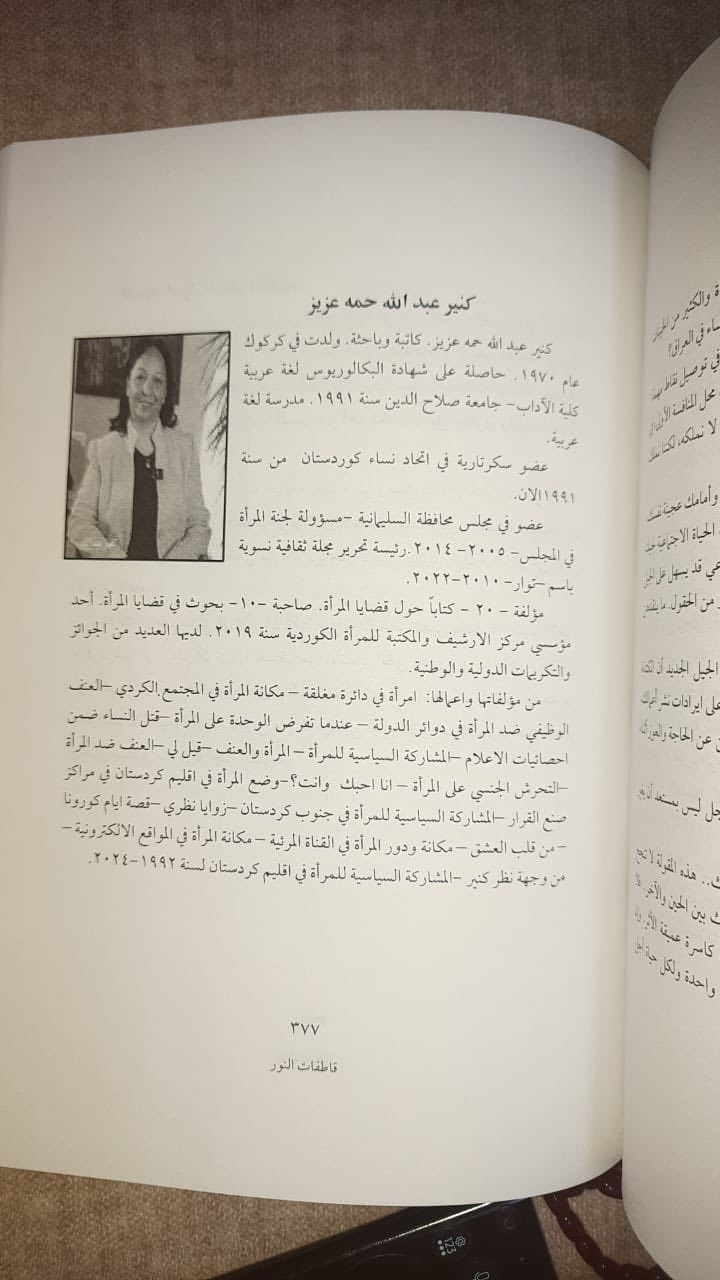 كنير عبد الله حمه عزيز
كنير عبد الله حمه عزيز. كاتبة وباحثة. ولدت في كركوك
عام ١٩٧٠. حاصلة على شهادة البكالوريوس لغة عربية
كلية الآداب- جامعة صلاح الدين سنة ١٩٩١. مدرسة لغة
عربية.
عضو سكرتارية في اتحاد نساء كوردستان من سنة
١٩٩١الان.
عضو في مجلس محافظة السليمانية -مسؤولة لجنة المرأة
في المجلس- ٢٠٠٥- ٢٠١٤.رئيسة تحرير مجلة ثقافية نسوية
باسم -توار- ٢٠١٠-٢٠٢٢.
مؤلفة - ٢٠ - كتاباً حول قضايا المرأة. صاحبة -١٠- بحوث في قضايا المرأة. أحد
مؤسسي مركز الارشيف والمكتبة للمرأة الكوردية سنة ٢٠١٩. لديها العديد من الجوائز
والتكريمات الدولية والوطنية.
من مؤلفاتها واعمالها: امرأة في دائرة مغلقة - مكانة المرأة في المجتمع الكردي -العنف
الوظيفي ضد المرأة في دوائر الدولة - عندما تفرض الوحدة على المرأة - قتل النساء ضمن
احصائيات الاعلام -المشاركة السياسية للمرأة - المرأة والعنف -قيل لي -العنف ضد المرأة
-التحرش الجنسي على المرأة - انا احبك وانت؟-وضع المرأة في اقليم كردستان في مراكز
صنع القرار -المشاركة السياسية للمرأة في جنوب كردستان -زوايا نظري -قصة ايام كورونا
-من قلب العشق - مكانة ودور المرأة في القناة المرئية - مكانة المرأة في المواقع الالكترونية -
من وجهة نظر كنير -المشاركة السياسية للمرأة في اقليم كردستان لسنة ١٩٩٢-٢٠٢٤.
٣٧٧
قاطفات النور
ة والكثير من
ساء في العراق؟
في توصيل نقاط مهمة
محل المنافسة
لا نملكه، لكننا
وأمامك عجينة
الحياة الاجتماعية
عي قد يسهل على
من الحقول.
الجيل الجديد أن
على ايرادات نشر
ن عن الحاجة والعوز
جل ليس بمستعد أن
ك.. هذه المقولة لا
ك بين الحين والآخر.
كاسرة عميقة الأثر.
واحدة ولكل حياة
123